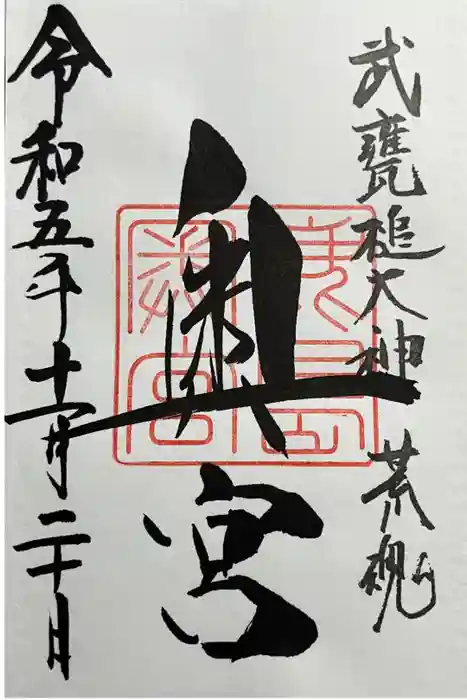 武甕槌大神 荒魂
奥宮
令和五年十一月二十日
鹿島
奥宮